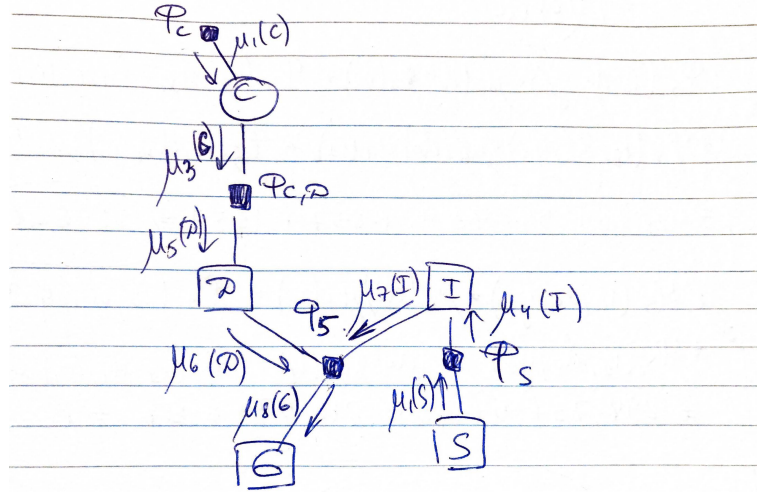 φ_C
μ₁(C)
C
μ₃(C)
φ_C,D
μ₅(D)
D
φ₅
μ₇(I)
I
μ₄(I)
μ₆(D)
φ_S
μ₈(G)
μ₁(S)
G
S